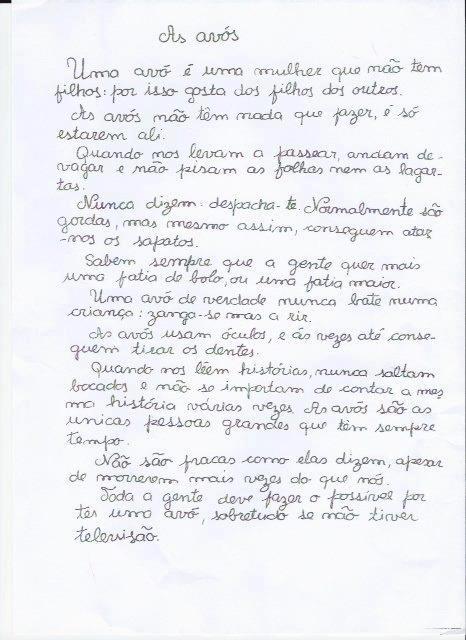 As avós
Uma avó é uma mulher que não tem
filhos: por isso gosta dos filhos dos outros.
As avós não têm nada que fazer, é só
estarem ali.
Quando nos levam a passear, andam de-
vagar e não pisam as folhas nem as lagar-
tas.
Nunca dizem: despacha-te. Normalmente são
gordas, mas mesmo assim, conseguem atar
-nos os sapatos.
Sabem sempre que a gente quer mais
uma fatia de bolo, ou uma fatia maior.
Uma avó de verdade nunca bate numa
criança: zanga-se mas a rir.
As avós usam óculos, e ás vezes até conse-
guem tirar os dentes.
Quando nos lêem histórias, nunca saltam
bocados e não se importam de contar a mes
ma história várias vezes. As avós são as
unicas pessoas grandes que têm sempre
tempo.
Não são fracas como elas dizem, apesar
de morrerem mais vezes do que nós.
Toda a gente deve fazer o possível por
ter uma avó, sobretudo se não tiver
televisão.